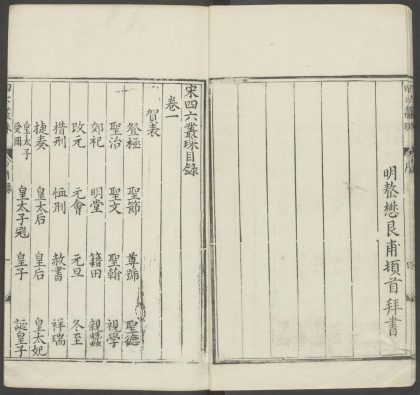 明嶅懋艮甫頓首拜書
宋四六叢珠目錄
卷一
賀表
登極 聖節 尊號 聖德
聖治 聖文 聖翰 視學
郊祀 明堂 籍田 親蠶
改元 元會 元旦 冬至
措刑 恤刑 赦書 祥瑞
捷奏 皇太后 皇后 皇太妃
皇太子受冊 皇太子冠 皇子 誕皇子